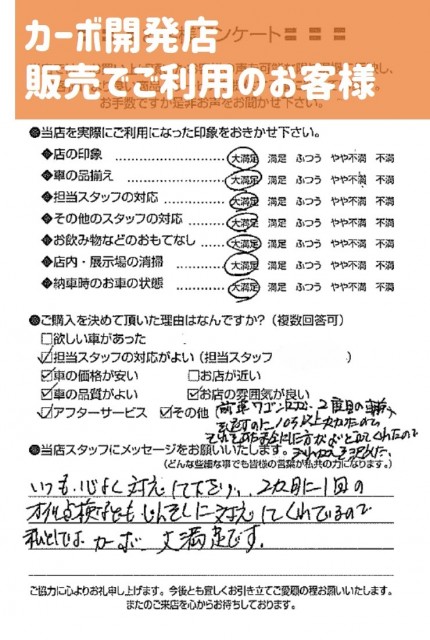 カーボ開発店
販売でご利用のお客様
ンケート
お手数ですが是非お声をお聞かせ下さい。
●当店を実際にご利用になった印象をおきかせ下さい。
◆店の印象 大満足 満足 ふつう やや不満 不満
◆車の品揃え 大満足 満足 ふつう やや不満 不満
◆担当スタッフの対応 大満足 満足 ふつう やや不満 不満
◆その他のスタッフの対応 大満足 満足 ふつう やや不満 不満
◆お飲み物などのおもてなし 大満足 満足 ふつう やや不満 不満
◆店内・展示場の清掃 大満足 満足 ふつう やや不満 不満
◆納車時のお車の状態 大満足 満足 ふつう やや不満 不満
●ご購入を決めて頂いた理由はなんですか?（複数回答可）
□欲しい車があった
☑担当スタッフの対応がよい（担当スタッフ ）
☑車の価格が安い □お店が近い
☑車の品質がよい ☑お店の雰囲気が良い
☑アフターサービス ☑その他
2度目の車
●当店スタッフにメッセージをお願いいたします。
（どんな些細な事でも皆様の言葉が私共の力になります。）
いつも心よく対応して下さり、2カ月に1回の
オイル点検なども しんせつに対応してくれているので
私としては カーボ 大満足です。
ご協力に心よりお礼申し上げます。今後とも宜しくお引き立てご愛顧の程お願いいたします。
またのご来店を心からお待ちしております。